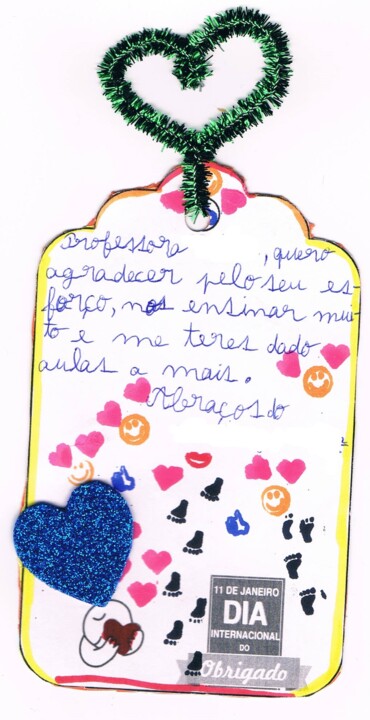 Professora , quero
agradecer pelo seu es-
forço, nos ensinar mui-
to e me teres dado
aulas a mais.
Abraços do
11 DE JANEIRO
DIA
INTERNACIONAL
DO
Obrigado